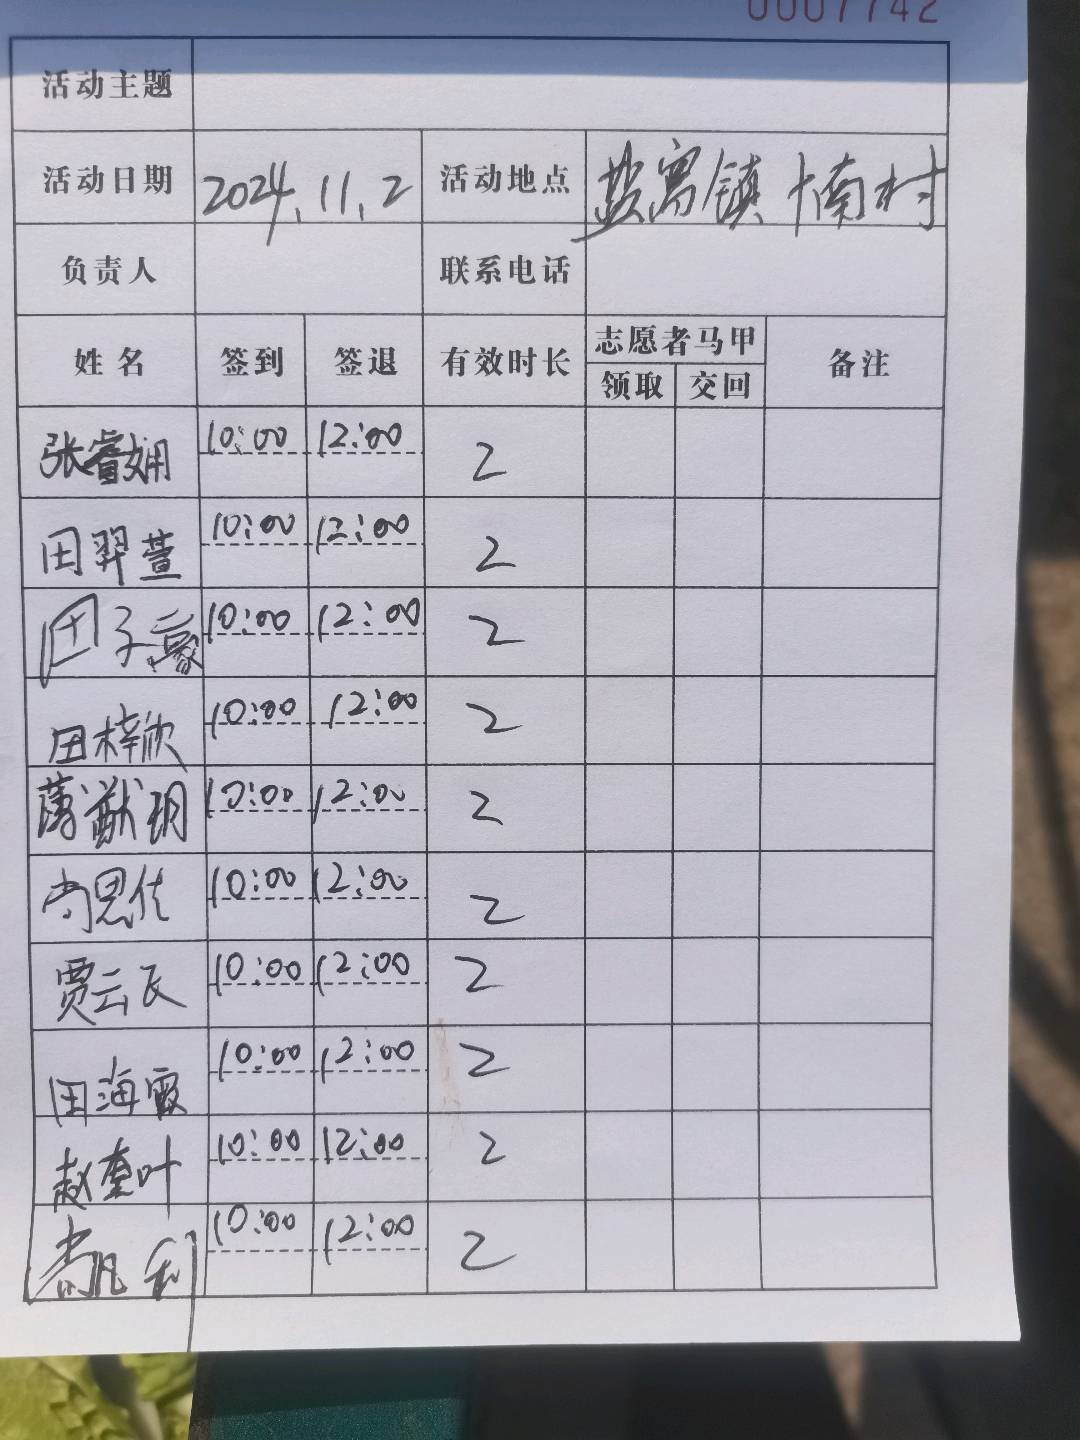 0007742
活动主题
活动日期 2024.11.2 活动地点 盐窝镇 十南村
负责人 联系电话
姓名 签到 签退 有效时长 志愿者马甲 备注
领取 交回
张睿娴 10:00 12:00 2
田羿萱 10:00 12:00 2
田子 10:00 12:00 2
田梓欣 10:00 12:00 2
薄猷玥 10:00 12:00 2
尚思佳 10:00 12:00 2
贾云飞 10:00 12:00 2
田海霞 10:00 12:00 2
赵奎叶 10:00 12:00 2
10:00 12:00 2